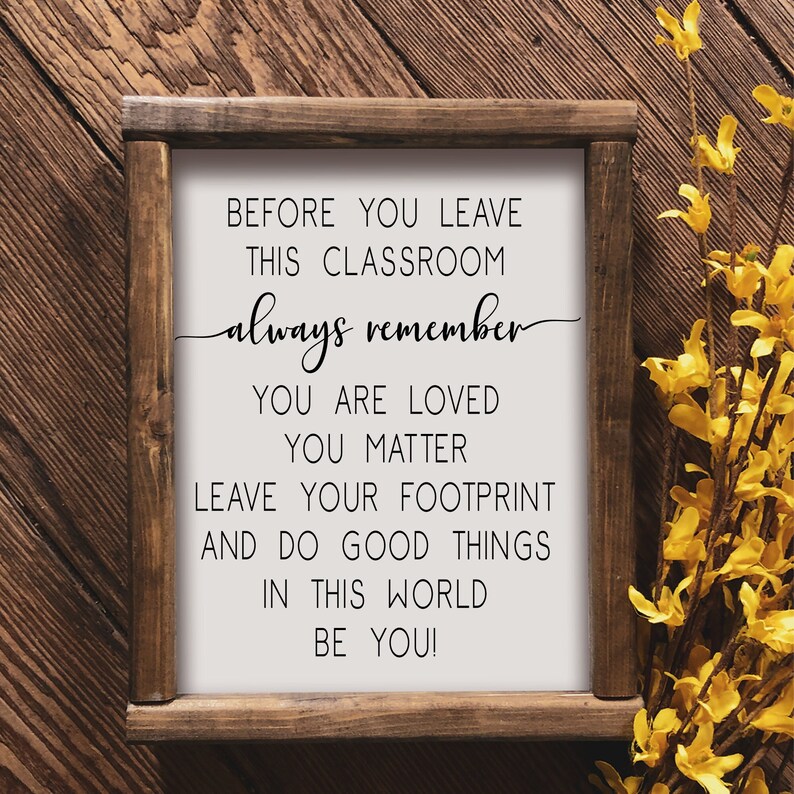 BEFORE YOU LEAVE
THIS CLASSROOM
always remember
YOU ARE LOVED
YOU MATTER
LEAVE YOUR FOOTPRINT
AND DO GOOD THINGS
IN THIS WORLD
BE YOU!